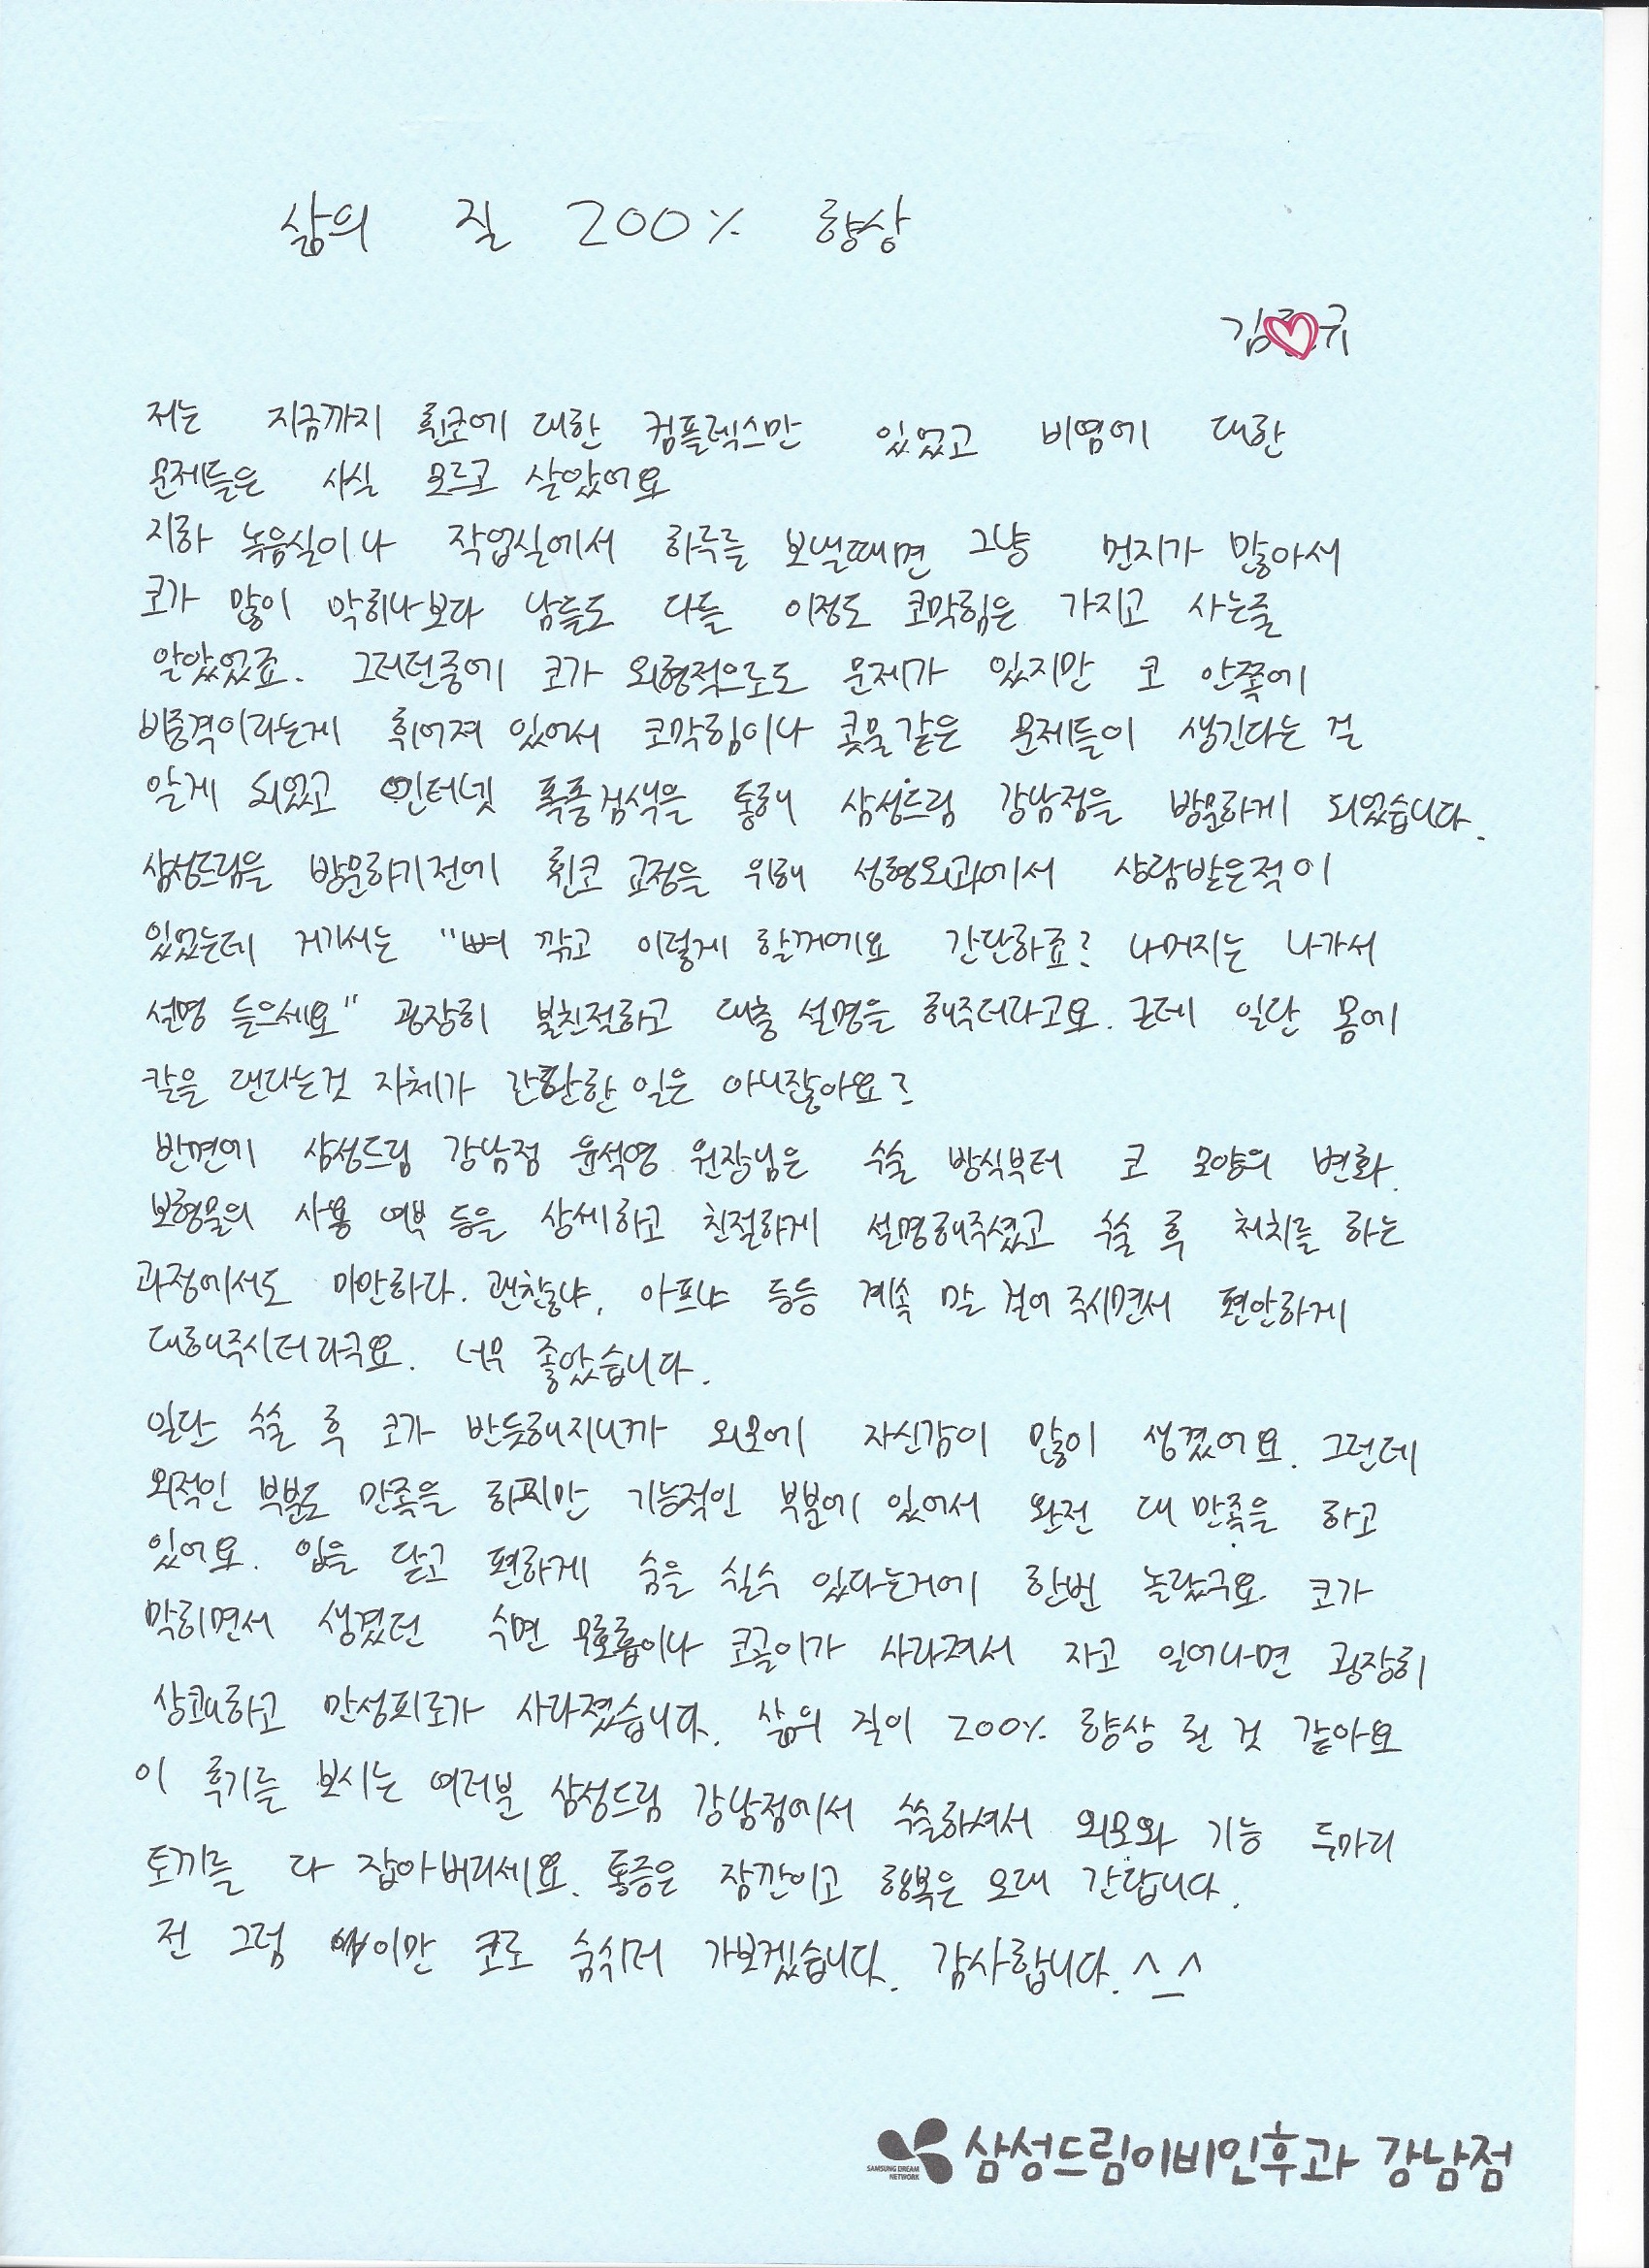 삶의 질 200% 향상
김 규
저는 지금까지 휜코에 대한 컴플렉스만 있었고 비염에 대한
문제들은 사실 모르고 살았어요
지하 녹음실이나 작업실에서 하루를 보낼때면 그냥 먼지가 많아서
코가 많이 막히나보다 남들도 다들 이정도 코막힘은 가지고 사는줄
알았었죠. 그러던중에 코가 외형적으로도 문제가 있지만 코 안쪽에
비중격이라는게 휘어져 있어서 코막힘이나 콧물같은 문제들이 생긴다는 걸
알게 되었고 인터넷 폭풍검색을 통해 삼성드림 강남점을 방문하게 되었습니다.
삼성드림을 방문하기전에 휜코 교정을 위해 성형외과에서 상담받은적이
있었는데 거기서는 "뼈 깎고 이렇게 할꺼에요 간단하죠? 나머지는 나가서
설명 들으세요" 굉장히 불친절하고 대충 설명을 해주더라고요. 근데 일단 몸에
칼을 댄다는것 자체가 간단한 일은 아니잖아요?
반면에 삼성드림 강남점 윤석영 원장님은 수술 방식부터 코 모양의 변화.
보형물의 사용 여부 등을 상세하고 친절하게 설명해주셨고 수술 후 처치를 하는
과정에서도 미안하다. 괜찮냐, 아프냐 등등 계속 말 걸어 주시면서 편안하게
대해주시더라구요. 너무 좋았습니다.
일단 수술 후 코가 반듯해지니까 외모에 자신감이 많이 생겼어요. 그런데
외적인 부분도 만족을 하지만 기능적인 부분에 있어서 완전 대 만족을 하고
있어요. 입을 닫고 편하게 숨을 쉴수 있다는거에 한번 놀랐구요. 코가
막히면서 생겼던 수면 무호흡이나 코골이가 사라져서 자고 일어나면 굉장히
상쾌하고 만성피로가 사라졌습니다. 삶의 질이 200% 향상 된 것 같아요
이 후기를 보시는 여러분 삼성드림 강남점에서 수술하셔서 외모와 기능 두마리
토끼를 다 잡아버리세요. 통증은 잠깐이고 행복은 오래 간답니다.
전 그럼 이만 코로 숨쉬러 가보겠습니다. 감사합니다. ^_^
SAMSUNG DREAM
NETWORK
삼성드림이비인후과 강남점